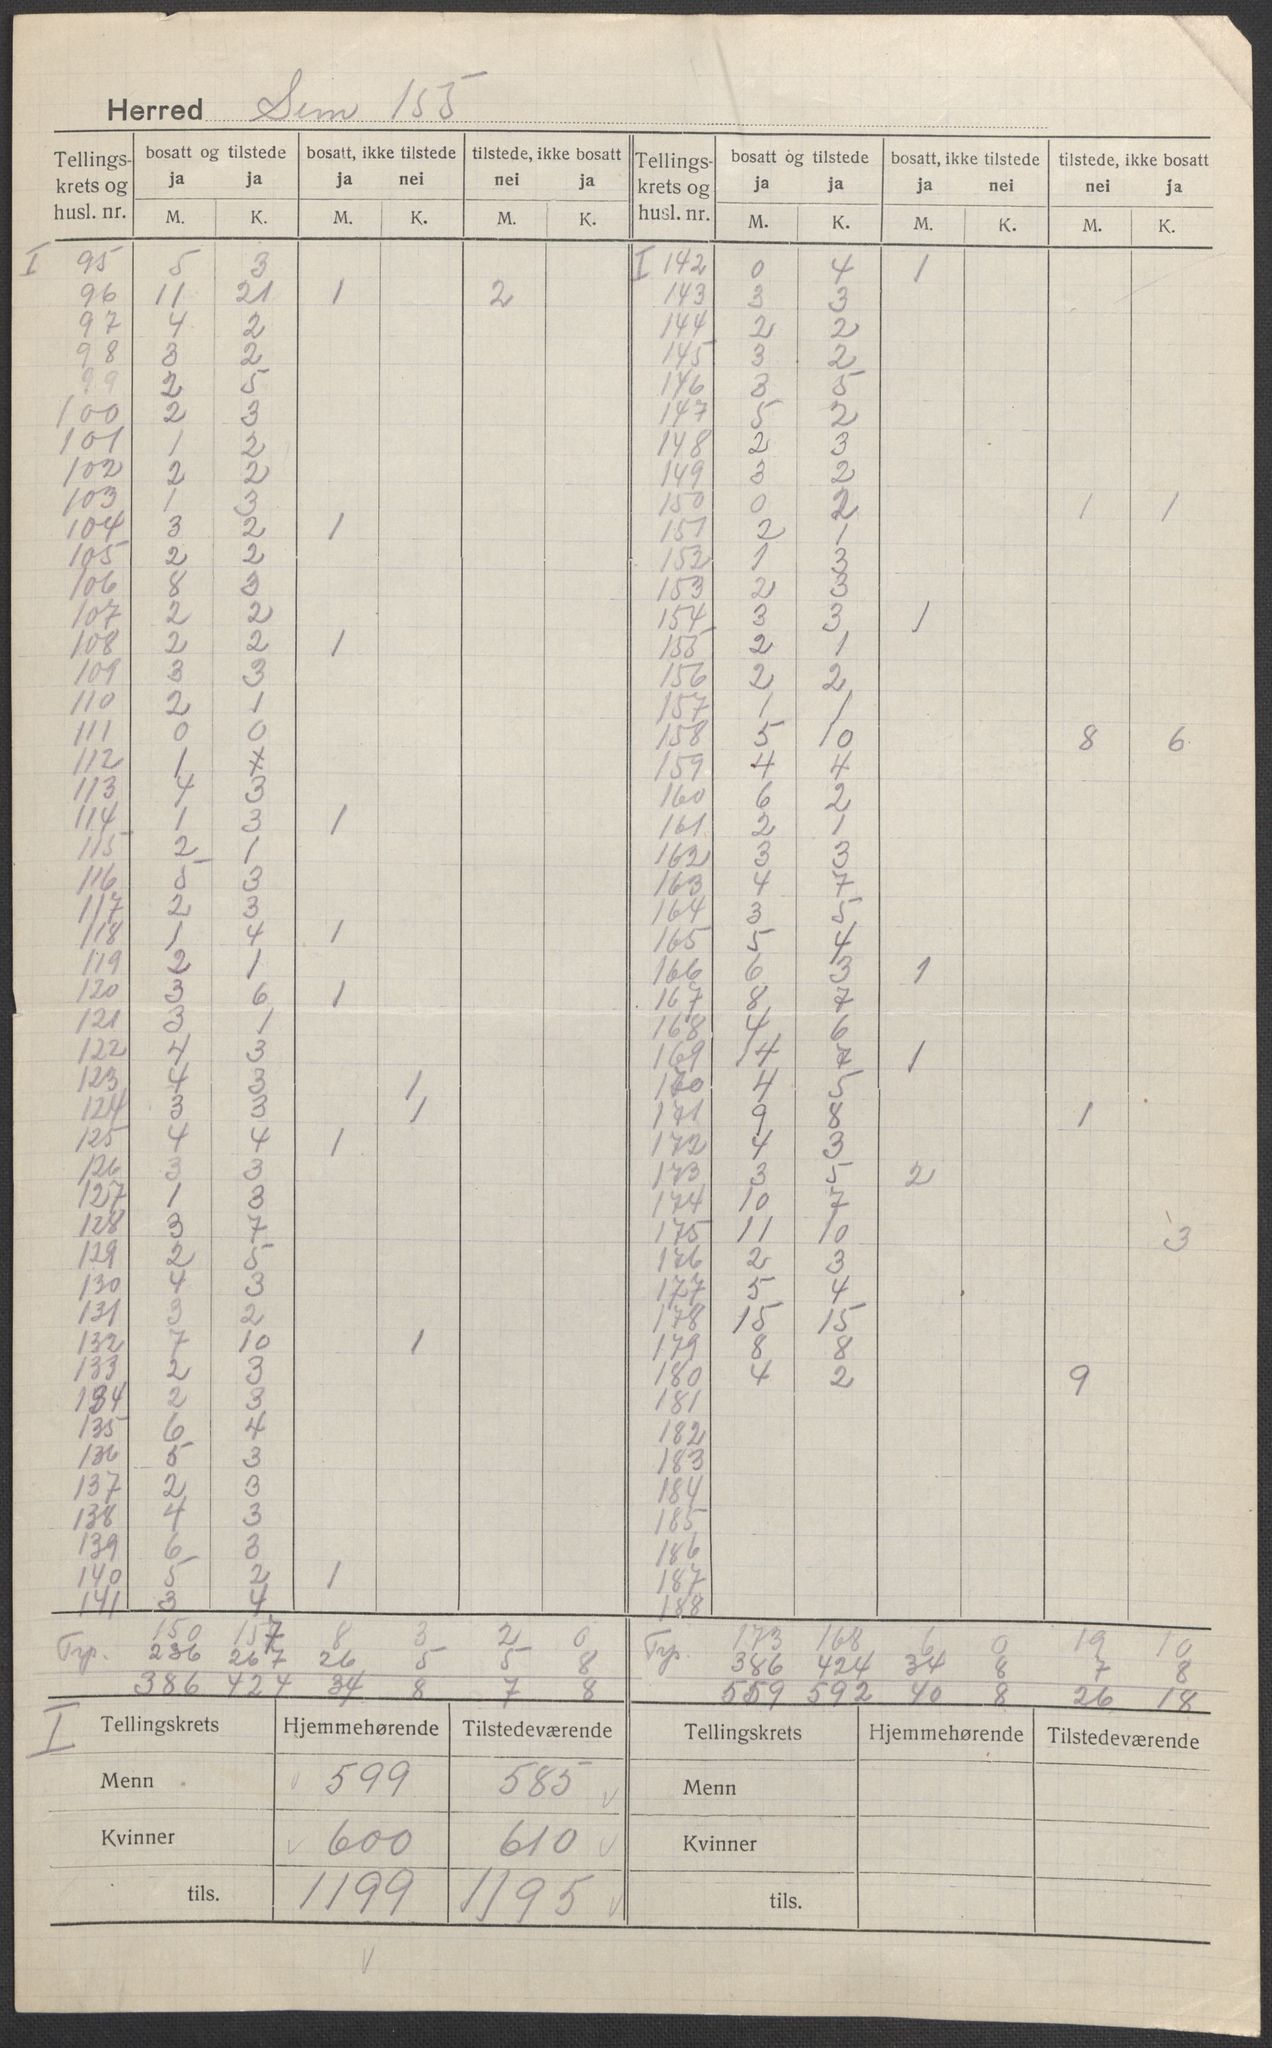 Herred Sem 155
Tellings-krets og husl. nr. | bosatt og tilstede ja M. | ja K. | bosatt, ikke tilstede ja M. | nei K. | tilstede, ikke bosatt nei M. | ja K. | Tellings-krets og husl. nr. | bosatt og tilstede ja M. | ja K. | bosatt, ikke tilstede ja M. | nei K. | tilstede, ikke bosatt nei M. | ja K.
I 95 | 5 | 3 | | | | | I 142 | 0 | 4 | 1 | | |
96 | 11 | 21 | 1 | | 2 | | 143 | 3 | 3 | | | |
97 | 4 | 2 | | | | | 144 | 2 | 2 | | | |
98 | 3 | 2 | | | | | 145 | 3 | 2 | | | |
99 | 2 | 5 | | | | | 146 | 3 | 5 | | | |
100 | 2 | 3 | | | | | 147 | 5 | 2 | | | |
101 | 1 | 2 | | | | | 148 | 2 | 3 | | | |
102 | 2 | 2 | | | | | 149 | 3 | 2 | | | |
103 | 1 | 3 | | | | | 150 | 0 | 2 | | | 1 | 1
104 | 3 | 2 | 1 | | | | 151 | 2 | 1 | | | |
105 | 2 | 2 | | | | | 152 | 1 | 3 | | | |
106 | 8 | 3 | | | | | 153 | 2 | 3 | | | |
107 | 2 | 2 | | | | | 154 | 3 | 3 | 1 | | |
108 | 2 | 2 | 1 | | | | 155 | 2 | 1 | | | |
109 | 3 | 3 | | | | | 156 | 2 | 2 | | | |
110 | 2 | 1 | | | | | 157 | 1 | 1 | | | |
111 | 0 | 0 | | | | | 158 | 5 | 10 | | | 8 | 6
112 | 1 | | | | | | 159 | 4 | 4 | | | |
113 | 4 | 3 | | | | | 160 | 6 | 2 | | | |
114 | 1 | 3 | 1 | | | | 161 | 2 | 1 | | | |
115 | 2 | 1 | | | | | 162 | 3 | 3 | | | |
116 | 5 | 3 | | | | | 163 | 4 | 7 | | | |
117 | 2 | 3 | | | | | 164 | 3 | 5 | | | |
118 | 1 | 4 | 1 | | | | 165 | 5 | 4 | | | |
119 | 2 | 1 | | | | | 166 | 6 | 3 | 1 | | |
120 | 3 | 6 | 1 | | | | 167 | 8 | 7 | | | |
121 | 3 | 1 | | | | | 168 | 4 | 6 | | | |
122 | 4 | 3 | | | | | 169 | | | 1 | | |
123 | 4 | 3 | | 1 | | | 170 | 4 | 5 | | | |
124 | 3 | 3 | | 1 | | | 171 | 9 | 8 | | | 1 |
125 | 4 | 4 | 1 | | | | 172 | 4 | 3 | | | |
126 | 3 | 3 | | | | | 173 | 3 | 5 | 2 | | |
127 | 1 | 3 | | | | | 174 | 10 | 7 | | | |
128 | 3 | 7 | | | | | 175 | 11 | 10 | | | | 3
129 | 2 | 5 | | | | | 176 | 2 | 3 | | | |
130 | 4 | 3 | | | | | 177 | 5 | 4 | | | |
131 | 3 | 2 | | | | | 178 | 15 | 15 | | | |
132 | 7 | 10 | | 1 | | | 179 | 8 | 8 | | | |
133 | 2 | 3 | | | | | 180 | 4 | 2 | | | 9 |
134 | 2 | 3 | | | | | 181
135 | 6 | 4 | | | | | 182
136 | 5 | 3 | | | | | 183
137 | 2 | 3 | | | | | 184
138 | 4 | 3 | | | | | 185
139 | 6 | 3 | | | | | 186
140 | 5 | 2 | 1 | | | | 187
141 | 3 | 4 | | | | | 188
150 | 157 | 8 | 3 | 2 | 0 | | 173 | 168 | 6 | 0 | 19 | 10
Trp. | 236 | 267 | 26 | 5 | 5 | 8 | Trp. | 386 | 424 | 34 | 8 | 7 | 8
386 | 424 | 34 | 8 | 7 | 8 | | 559 | 592 | 40 | 8 | 26 | 18
I Tellingskrets | Hjemmehørende | Tilstedeværende | Tellingskrets | Hjemmehørende | Tilstedeværende
Menn | 599 | 585 | Menn
Kvinner | 600 | 610 | Kvinner
tils. | 1199 | 1195 | tils.